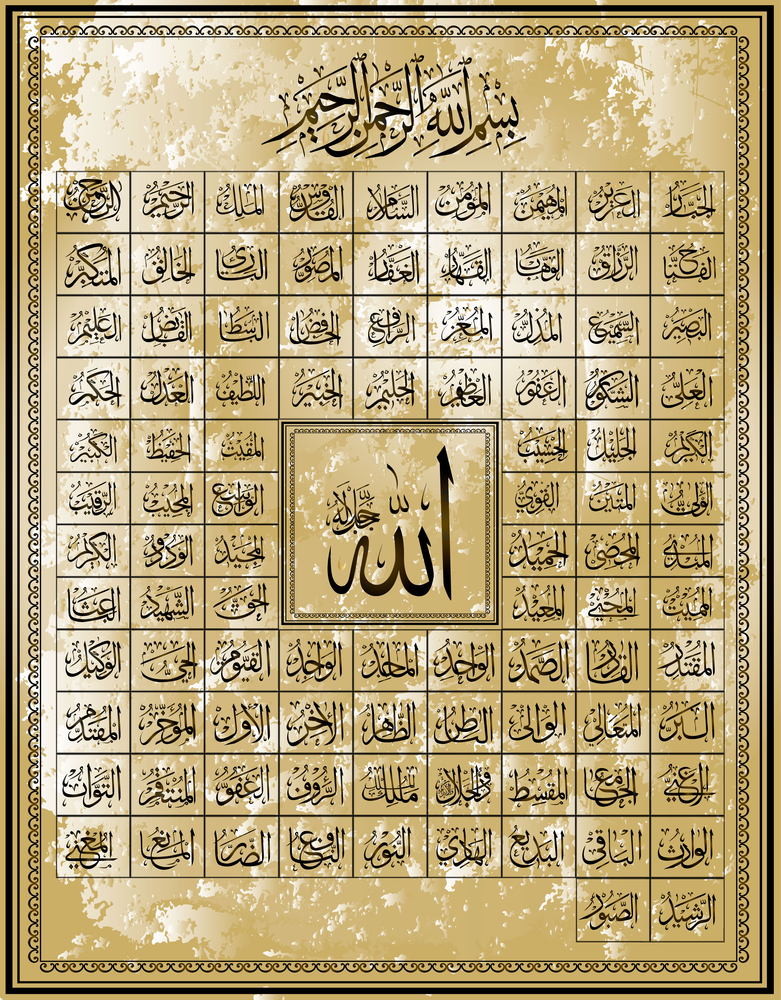 بِسْمِ اللهِ الرَّحْمنِ الرَّحِيمِ
الرحمن الرحيم الملك القدوس السلام المؤمن المهيمن العزيز الجبار
المتكبر الخالق البارئ المصور الغفار القهار الوهاب الرزاق الفتاح
العليم القابض الباسط الخافض الرافع المعز المذل السميع البصير
الحكم العدل اللطيف الخبير الحليم العظيم الغفور الشكور العلي
الكبير الحفيظ المقيت الحسيب الجليل الكريم
الرقيب المجيب الواسع القوي المتين الولي
الودود المجيد الحميد المحصي المبدئ
الباعث الشهيد الحق المعيد المحيي المميت
الله جل جلاله
الوكيل الحي القيوم الواجد الماجد الواحد الصمد القادر المقتدر
المقدم المؤخر الأول الآخر الظاهر الباطن الوالي المتعالي البر
التواب المنتقم العفو الرؤوف مالك ذو الجلال المقسط الجامع الغني
المغني المانع الضار النافع النور الهادي البديع الباقي الوارث
الرشيد الصبور